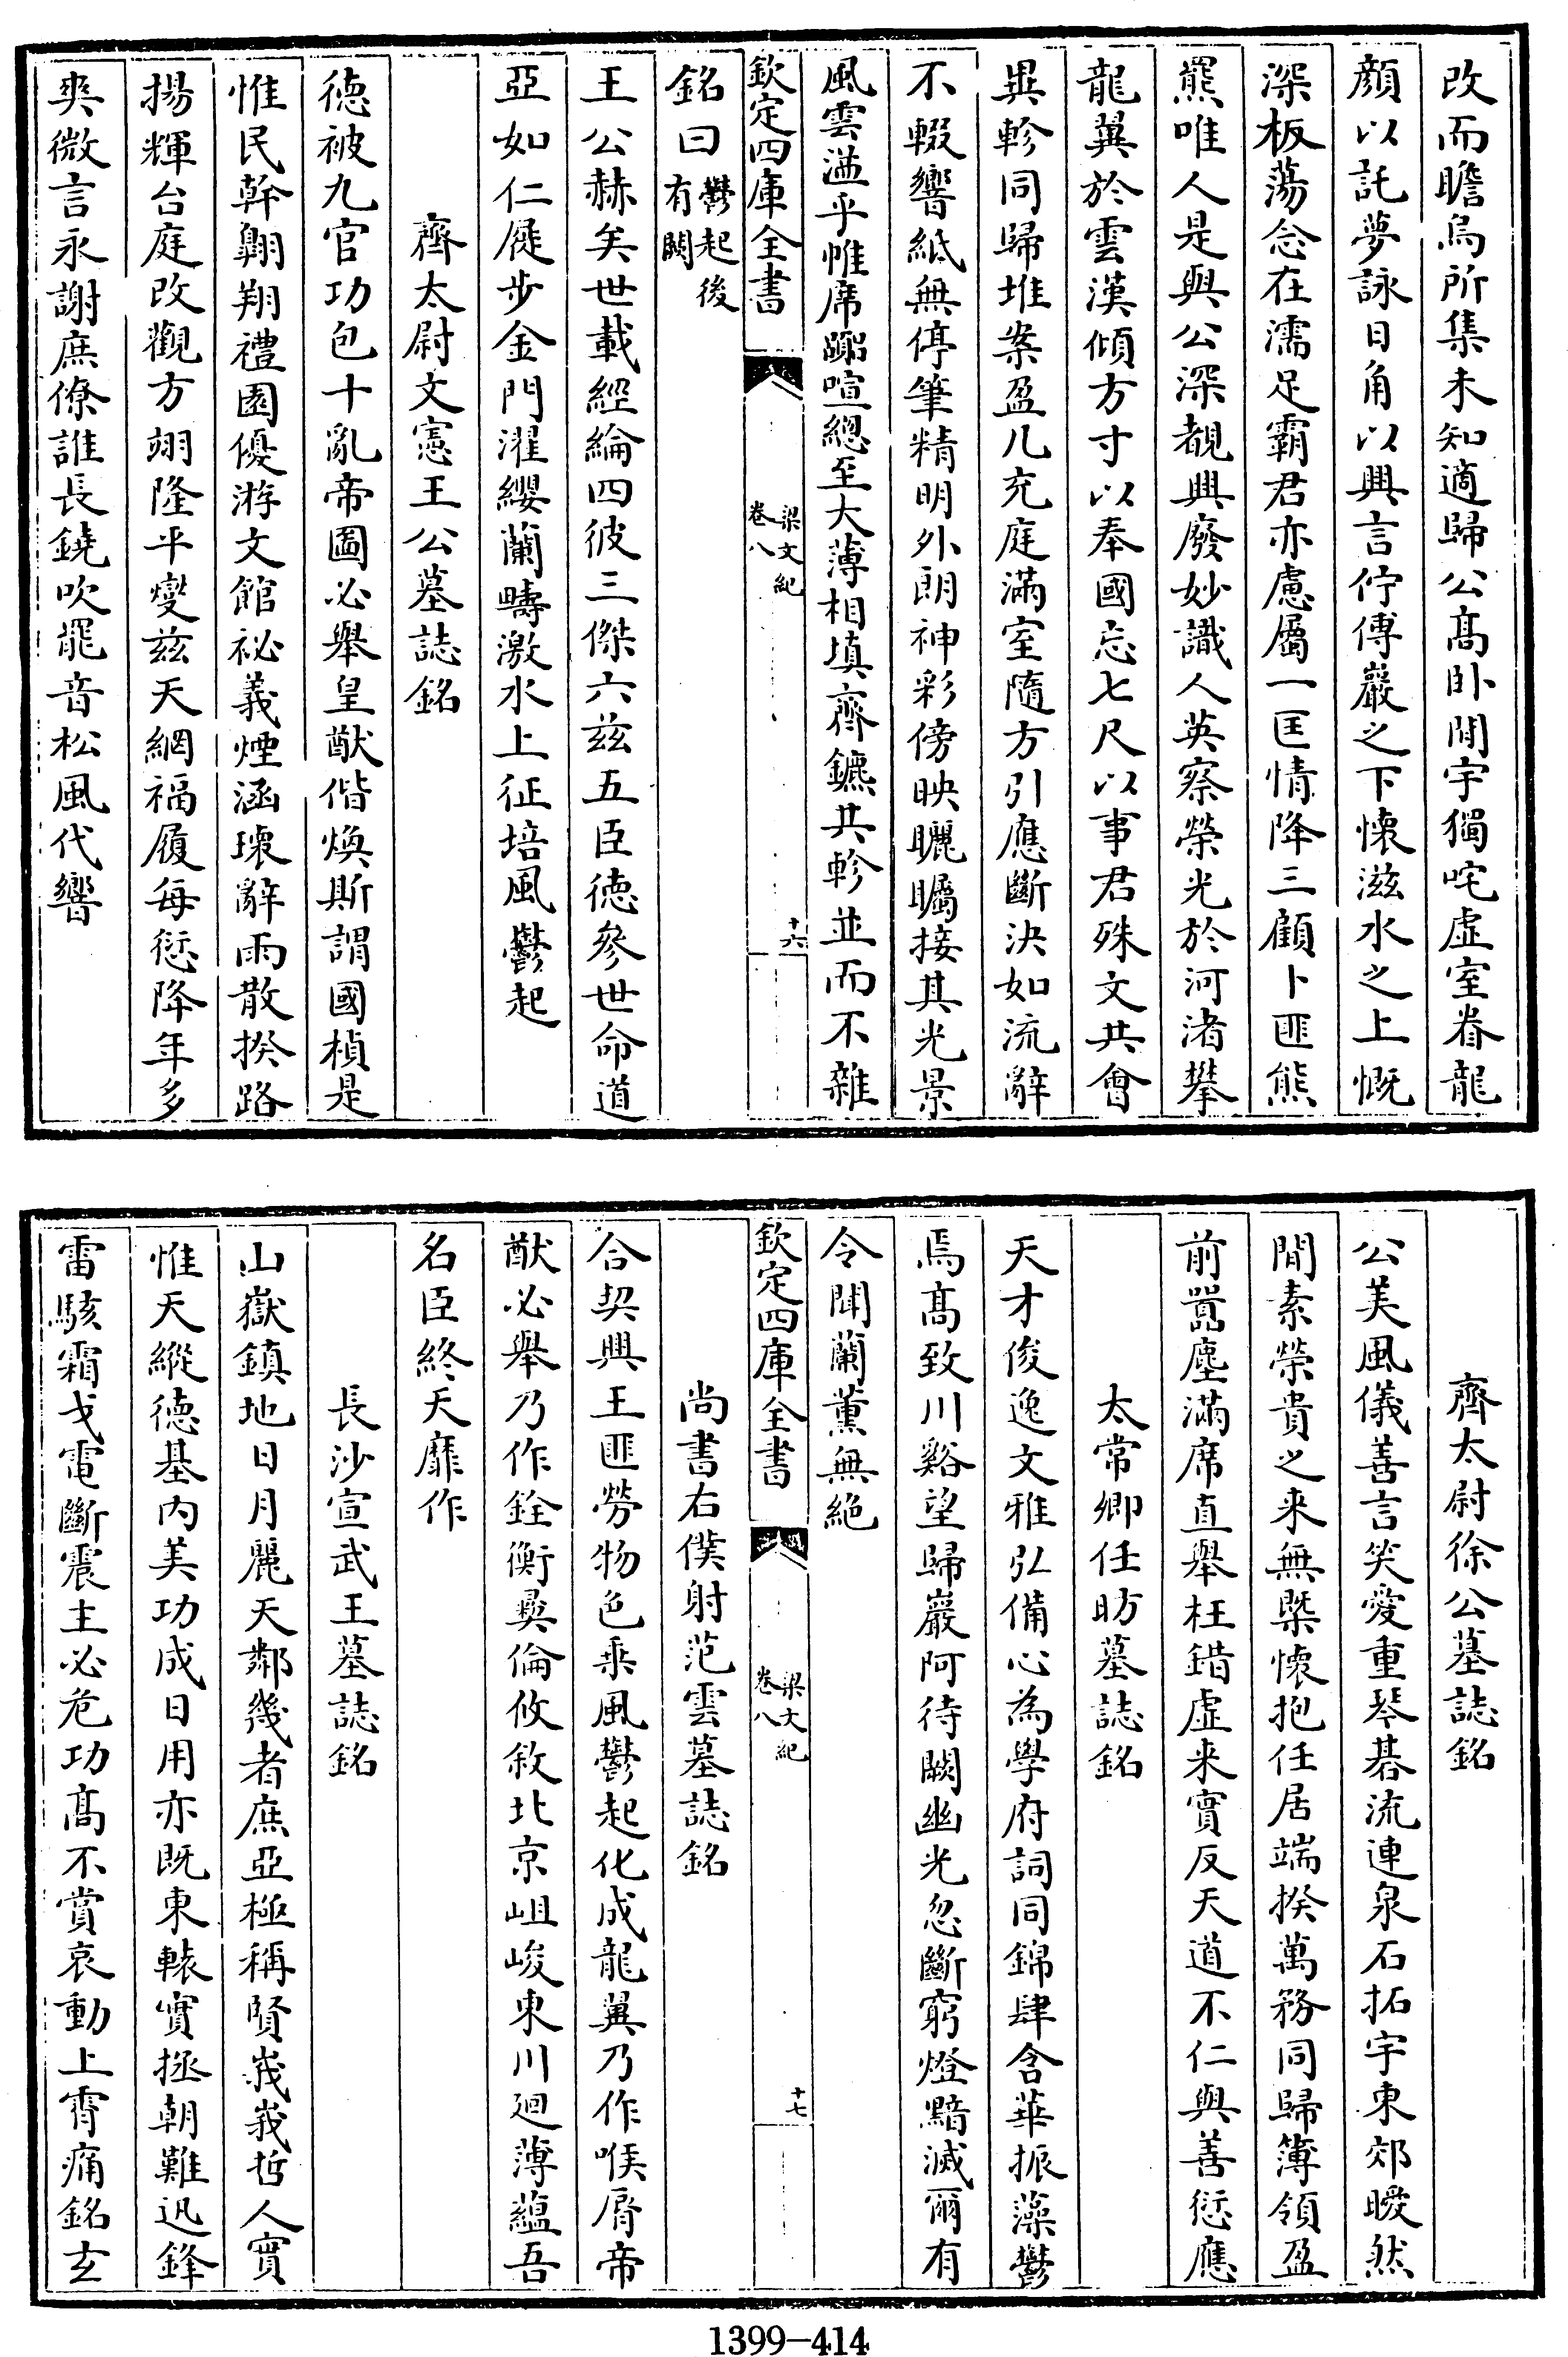 改而瞻烏所集未知適歸公髙卧閒宇獨咤虛室眷龍
顏以託夢詠日角以興言佇傅巖之下懷滋水之上慨
深板蕩念在濡足霸君亦慮屬一匡情降三顧卜匪熊
羆唯人是與公深覩興廢妙識人英察榮光於河渚攀
龍翼於雲漢傾方寸以奉國忘七尺以事君殊文共會
異軫同歸堆案盈几充庭滿室隨方引應斷決如流辭
不輟響紙無停筆精明外朗神彩傍映曬矚接其光景
風雲溢乎帷席䠂喧總至大薄相填齊鑣共軫並而不雜
欽定四庫全書
梁文紀
卷八
十六
銘曰鬱起後
有闕
王公赫矣世載經綸四彼三傑六兹五臣德參世命道
亞如仁屣步金門濯纓蘭疇激水上征培風鬱起
齊太尉文憲王公墓誌銘
德被九官功包十亂帝圖必舉皇猷偕煥斯謂國楨是
惟民幹翺翔禮園優游文館祕義煙涵瓌辭雨散揆路
揚輝台庭改觀方翊隆平燮兹天網福履每愆降年多
爽微言永謝庶僚誰長鐃吹罷音松風代響
齊太尉徐公墓誌銘
公美風儀善言笑愛重琴碁流連泉石拓宇東郊曖然
閒素榮貴之来無槩懷抱任居端揆萬務同歸簿領盈
前囂塵滿席直舉枉錯虛来實反天道不仁與善愆應
太常卿任昉墓誌銘
天才俊逸文雅弘備心為學府詞同錦肆含華振藻鬱
焉髙致川谿望歸巖阿待闕幽光忽斷窮燈黯滅爾有
令聞蘭薰無絶
欽定四庫全書
梁文紀
卷八
十七
尚書右僕射范雲墓誌銘
合契興王匪勞物色乗風鬱起化成龍翼乃作喉脣帝
猷必舉乃作銓衡彛倫攸敘北京岨峻東川廻薄蘊吾
名臣終天靡作
長沙宣武王墓誌銘
山嶽鎮地日月麗天鄰幾者庶亞極稱賢峩峩哲人實
惟天縱德基内美功成日用亦既東轅實拯朝難迅鋒
雷駭霜戈電斷震主必危功髙不賞哀動上霄痛銘玄
1399-414